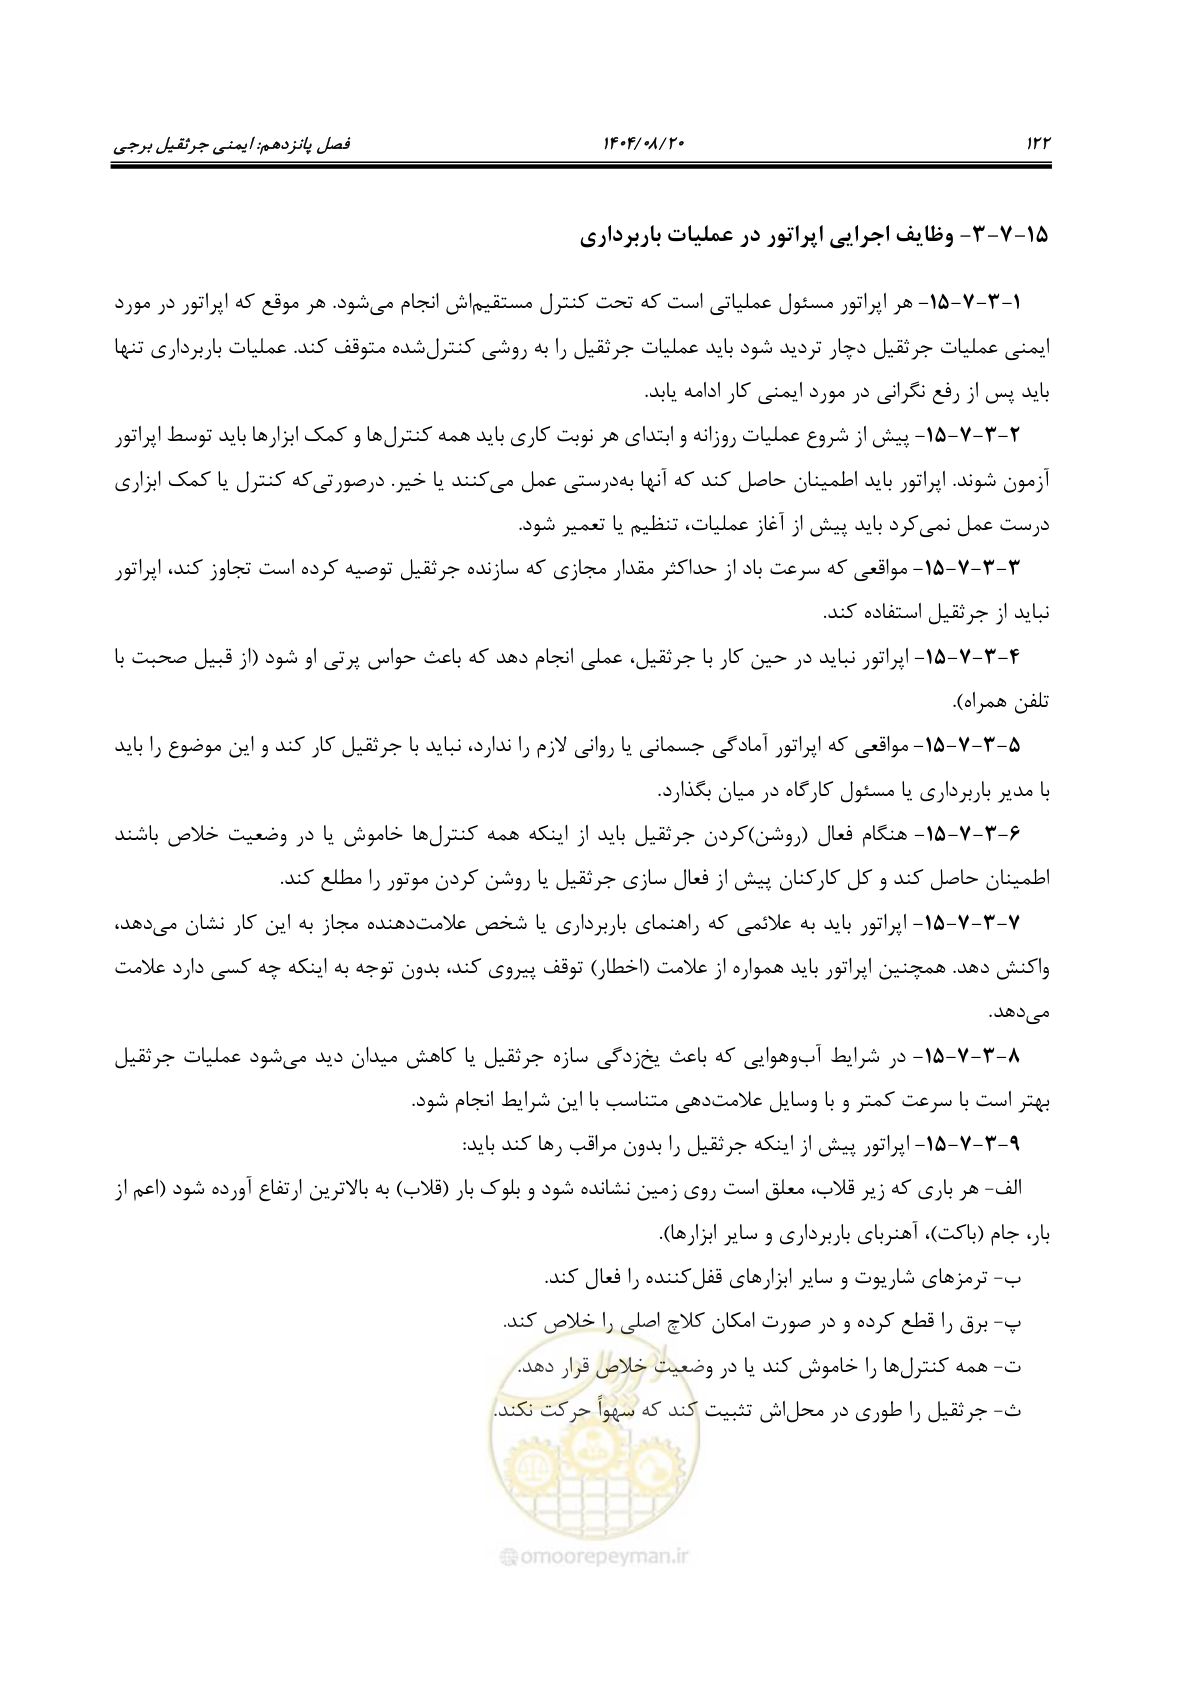 ۱۲۲ ۱۴۰۴/۰۸/۲۰ فصل پانزدهم: ایمنی جرثقیل برجی
۱۵-۷-۳- وظایف اجرایی اپراتور در عملیات باربرداری
۱۵-۷-۳-۱- هر اپراتور مسئول عملیاتی است که تحت کنترل مستقیم‌اش انجام می‌شود. هر موقع که اپراتور در مورد
ایمنی عملیات جرثقیل دچار تردید شود باید عملیات جرثقیل را به روشی کنترل‌شده متوقف کند. عملیات باربرداری تنها
باید پس از رفع نگرانی در مورد ایمنی کار ادامه یابد.
۱۵-۷-۳-۲- پیش از شروع عملیات روزانه و ابتدای هر نوبت کاری باید همه کنترل‌ها و کمک ابزارها باید توسط اپراتور
آزمون شوند. اپراتور باید اطمینان حاصل کند که آنها به‌درستی عمل می‌کنند یا خیر. درصورتی‌که کنترل یا کمک ابزاری
درست عمل نمی‌کرد باید پیش از آغاز عملیات، تنظیم یا تعمیر شود.
۱۵-۷-۳-۳- مواقعی که سرعت باد از حداکثر مقدار مجازی که سازنده جرثقیل توصیه کرده است تجاوز کند، اپراتور
نباید از جرثقیل استفاده کند.
۱۵-۷-۳-۴- اپراتور نباید در حین کار با جرثقیل، عملی انجام دهد که باعث حواس پرتی او شود (از قبیل صحبت با
تلفن همراه).
۱۵-۷-۳-۵- مواقعی که اپراتور آمادگی جسمانی یا روانی لازم را ندارد، نباید با جرثقیل کار کند و این موضوع را باید
با مدیر باربرداری یا مسئول کارگاه در میان بگذارد.
۱۵-۷-۳-۶- هنگام فعال (روشن)کردن جرثقیل باید از اینکه همه کنترل‌ها خاموش یا در وضعیت خلاص باشند
اطمینان حاصل کند و کل کارکنان پیش از فعال سازی جرثقیل یا روشن کردن موتور را مطلع کند.
۱۵-۷-۳-۷- اپراتور باید به علائمی که راهنمای باربرداری یا شخص علامت‌دهنده مجاز به این کار نشان می‌دهد،
واکنش دهد. همچنین اپراتور باید همواره از علامت (اخطار) توقف پیروی کند، بدون توجه به اینکه چه کسی دارد علامت
می‌دهد.
۱۵-۷-۳-۸- در شرایط آب‌وهوایی که باعث یخ‌زدگی سازه جرثقیل یا کاهش میدان دید می‌شود عملیات جرثقیل
بهتر است با سرعت کمتر و با وسایل علامت‌دهی متناسب با این شرایط انجام شود.
۱۵-۷-۳-۹- اپراتور پیش از اینکه جرثقیل را بدون مراقب رها کند باید:
الف- هر باری که زیر قلاب، معلق است روی زمین نشانده شود و بلوک بار (قلاب) به بالاترین ارتفاع آورده شود (اعم از
بار، جام (باکت)، آهنربای باربرداری و سایر ابزارها).
ب- ترمزهای شاریوت و سایر ابزارهای قفل‌کننده را فعال کند.
پ- برق را قطع کرده و در صورت امکان کلاچ اصلی را خلاص کند.
ت- همه کنترل‌ها را خاموش کند یا در وضعیت خلاص قرار دهد.
ث- جرثقیل را طوری در محل‌اش تثبیت کند که سهواً حرکت نکند.
امور پیمان
@omoorepeyman.ir